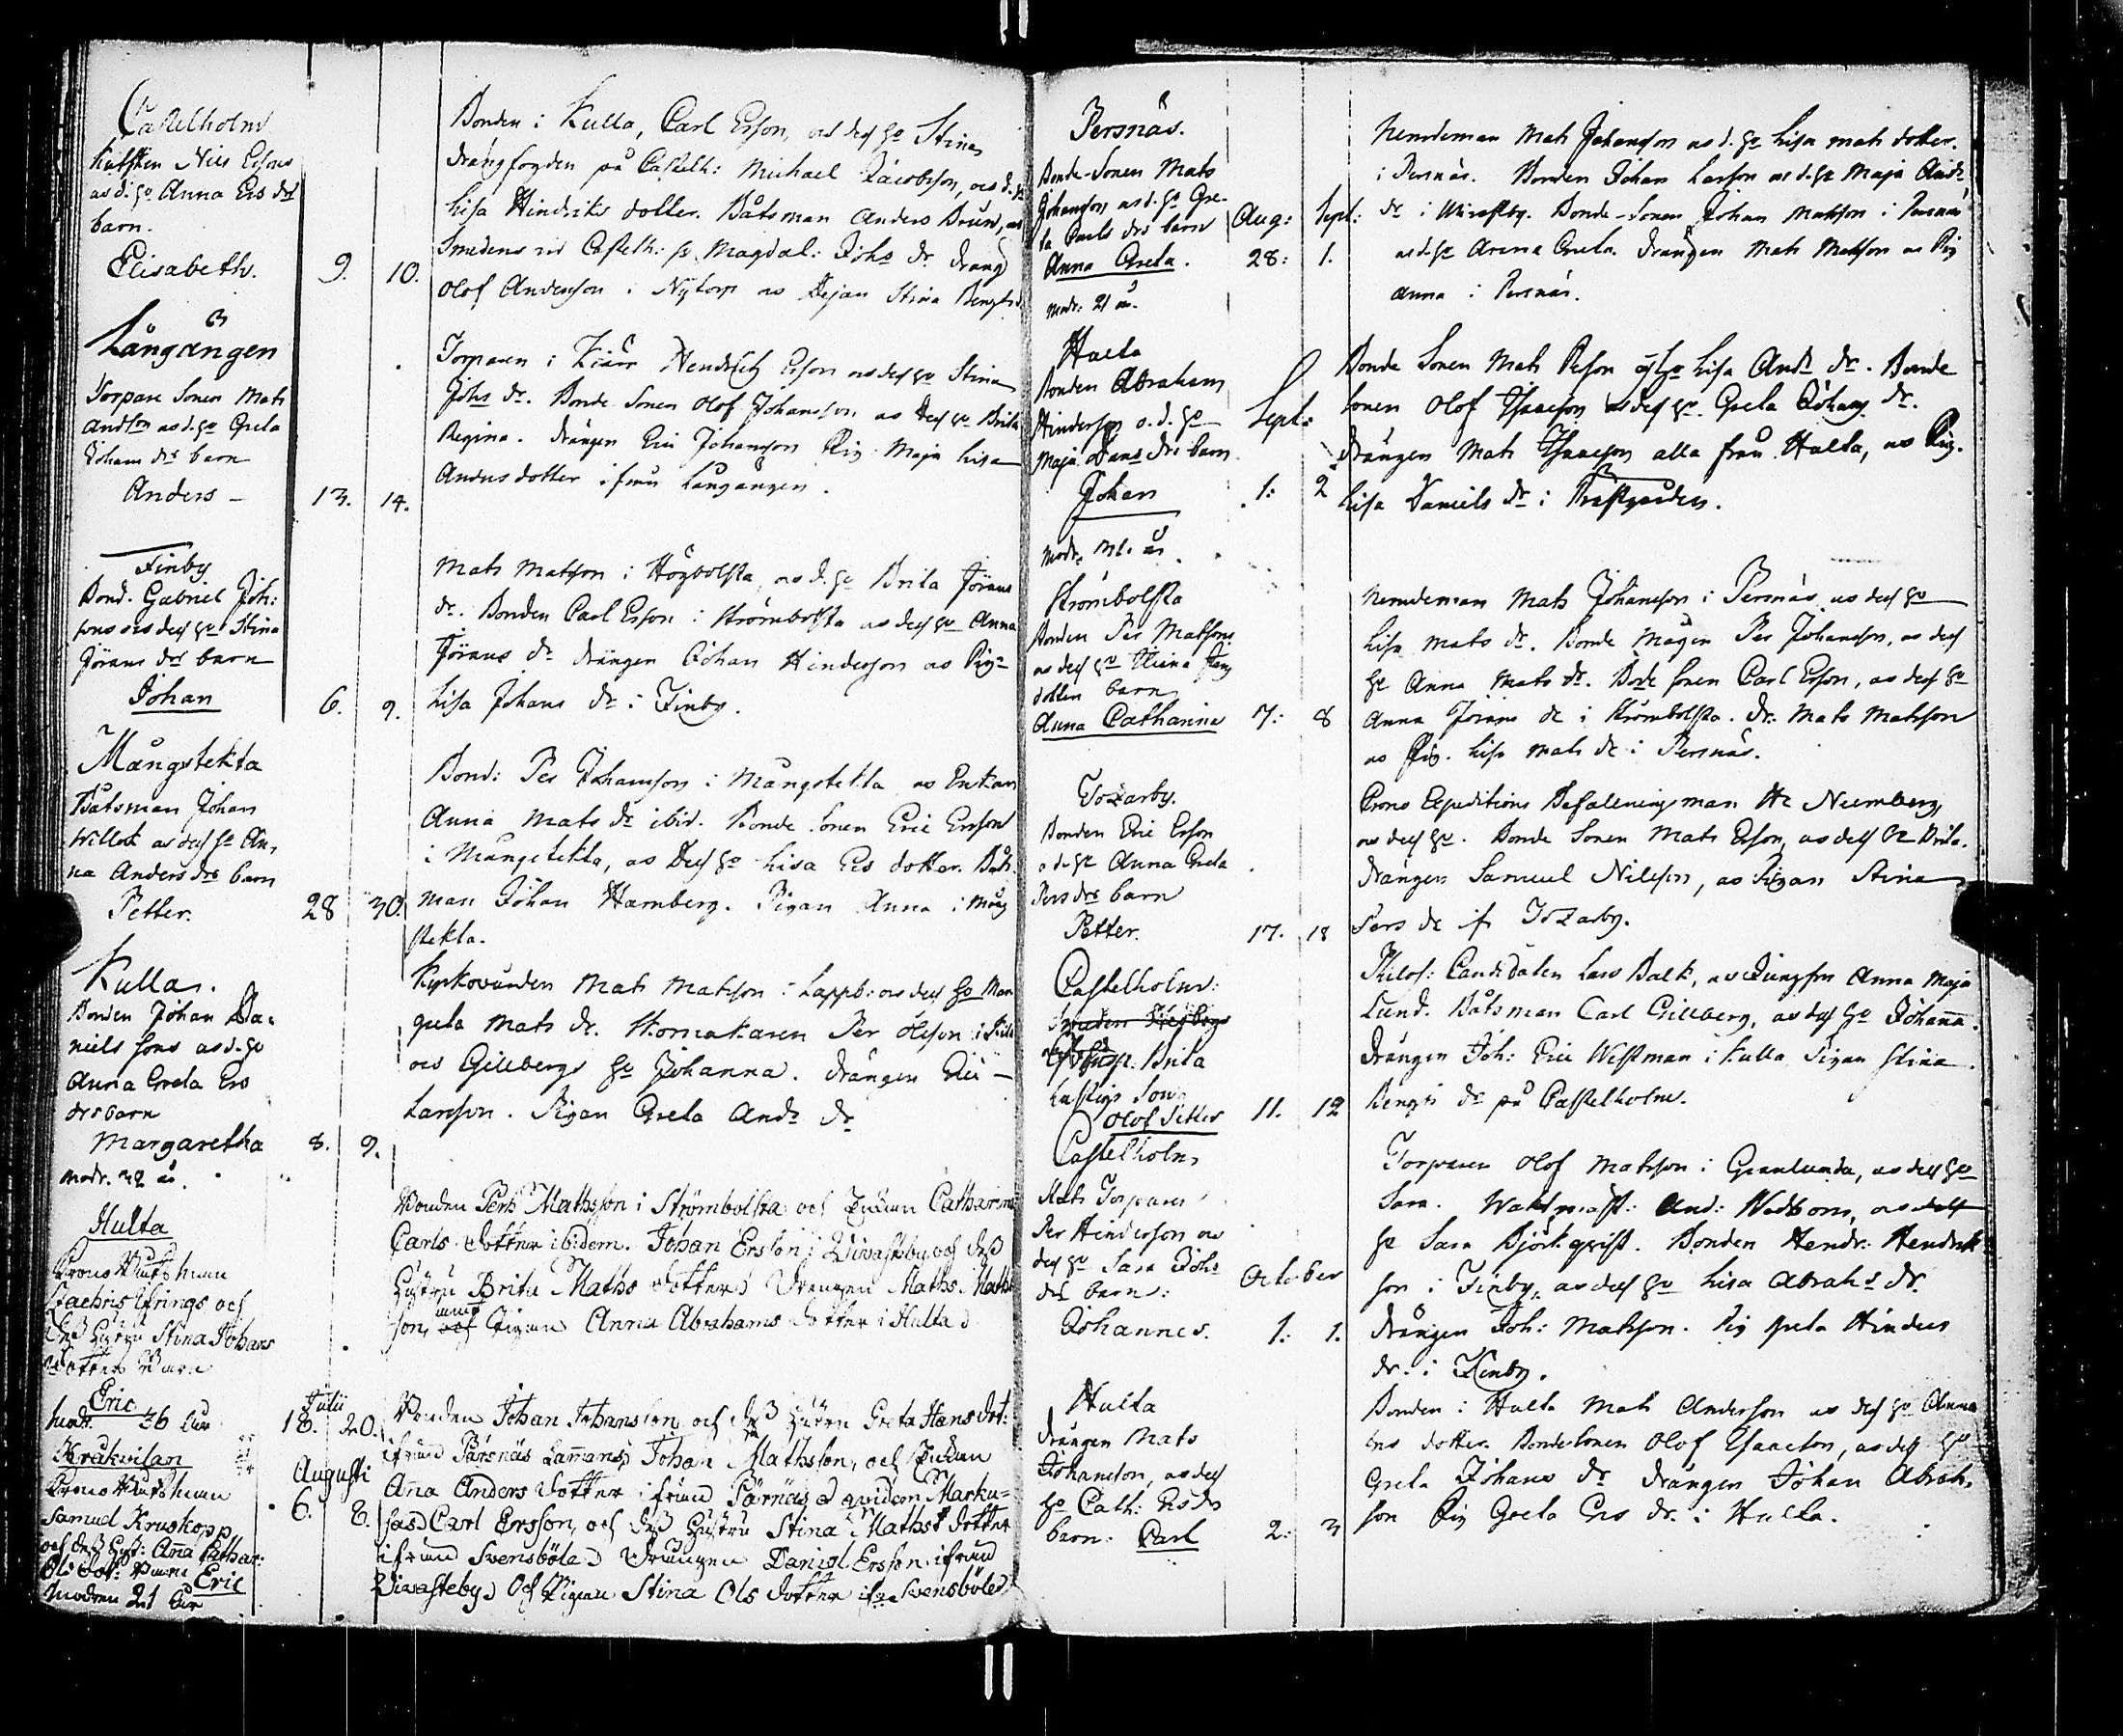 Castelholm
Kusken Nils Ersons
as d. ho Anna Ers drs
barn.
Elisabeth. 9. 10.
Bonden i Kulla, Carl Erson, as dess ho Stina
drängfogden på Castelh: Michael Jacobsson, as d. ho
Lisa Hindriks dotter. Båtsman Anders Brun, as
Smedens vid Castelh: ho Magdal: Johs dr. dräng
Olof Anderson i Nytorp as Pijan Stina Bengts d.
Långängen
Torpare Sonen Mats
Andson as d. ho Greta
Johans drs barn
Anders - 13. 14.
Torparen i Kiärr Hendrich Erson as dess ho Stina
Johs dr. Bonde Sonen Olof Johansson as dess ho Brita
Regina. drängen Eric Johanson Pig Maja Lisa
Andersdotter ifrån Långängen.
Finby
Bond. Gabriel Joh:
sons as dess ho Stina
Jörans drs barn
Johan 6. 9.
Mats Matsson i Högbolsta, as d. ho Brita Jörans
dr. Bonden Carl Erson i Strömbolsta as dess ho Anna
Jörans dr drängen Johan Hinderson as Pig
Lisa Johans dr i Finby.
Mångstekta
Båtsman Johan
Willok as dess ho An,
na Anders drs barn
Petter. 28 30.
Bond: Per Johansson i Mångstekta as Enkan
Anna Mats dr ibid. Bonde Sonen Eric Ersson
i Mångstekta, as dess ho Lisa Ers dotter. Båts
man Johan Hamberg. Pigan Anna i Mång
stekta.
Kulla.
Bonden Johan Da:
niels sons as d. ho
Anna Greta Ers
drs barn
Margaretha 8. 9.
modr. 32 år.
Kyrkovärden Mats Matsson i Lappb: as dess ho Mar
greta Mats dr. Skomakaren Per Olsson i
as Gillbergs ho Johanna. drängen Eric
Larsson. Pigan Greta Ands dr
Hulta
Crono Båtsman
Zachris Ifrings och
Dess Hustru Stina Johans
Dotters Barn
Eric
modr. 36 åar
Julii
18. 20.
Bonden Pehr Mathsson i Strömbolsta och Pigan Catharina
Carls Dotter ibidem. Johan Ersson i Wiwasteby, och Dess
Hustru Brita Maths Dotter) Drengen Maths Maths
son, samt och Pigan Anna Abrahams Dotter i Hulta)
Kråkvisan
Crono Båtsman
Samuel Kruskopp
och Dess Hust: Anna Cathar:
Ols Dot: Barn Eric
Modren 21 åar
Augusti
6. 8.
Bonden Johan Johansson och Dess Hustru Greta Hans Dot:
ifrån Pärsnäs Johan Mathsson, och Pigan
Ana Anders Dotter ifrån Pärsnäs) Marku=
Carl Ersson, och Dess Hustru Stina Maths Dotter
ifrån Svensböle) Drängen Daniel Ersson ifrån
Wiwasteby) Och Pigan Stina Ols Dotter ifrån Svensböle)
Persnäs.
Bonde-Sonen Mats
Johansson as d. ho Gre-
ta Carls drs barn
Anna Greta.
modr. 21 år.
Aug: Sept:
28: 1.
Nemdeman Mats Johansson as d. ho Lisa Mats dotter.
i Persnäs. Bonden Johan Larsson as d. ho Maja Ands
dr i Wivastby. Bonde-Sonen Johan Matsson i Persnäs
as d. ho Anna Greta. Drängen Mats Matsson as Pig
Anna i Persnäs.
Hulta
Bonden Abraham
Hinderson o. d. ho
Maja Hans drs barn
Johan
modr. 31. år
Sept:
1: 2
Bonde Sonen Mats Person och ho Lisa Ands dr. Bonde
Sonen Olof Isaacson as dess ho Greta Johans dr.
drängen Mats Isaacson alla från Hulta, as Pig.
Lisa Daniels dr i Prestgården.
Strömbolsta
Bonden Per Matsons
as dess ho Stina
dotters barn
Anna Catharina 7: 8
Nemdeman Mats Johansson i Persnäs as dess ho
Lisa Mats dr. Bonde Mågen Per Johansson, as dess
ho Anna Mats dr. Bonde sonen Carl Erson, as dess ho
Anna Jörans dr i Strömbolsta. Dr: Mats Matsson
as Pig. Lisa Mats dr i Persnäs.
Tosarby.
Bonden Eric Erson
o d. ho Anna Greta
Pers drs barn
Petter. 17. 18
Crono Expeditions Befallningsman Hr Numberg,
as dess ho. Bonde Sonen Mats Erson, as dess ho Brita.
drängen Samuel Nilsson, as Pigan Stina
Pers dr if. Tosarby.
Castelholm:
Smeden
Brita
Lustigs Son
Olof Petter 11. 12
Philos: Candidaten Lars Balk, as Jungfru Anna Maja
Lund. Båtsman Carl Gillberg, as dess ho Johanna.
drängen Joh: Eric Westman i Kulla Pigan Stina
Bengts dr på Castelholm.
Castelholm
Mats Torparen
Per Hinderson as
dess ho Sara Johs
drs barn:
Johannes.
October
1: 1.
Torparen Olof Matsson i Granlunda, as dess ho
Sara. Waktmäst: And: Wedbom, as dess
ho Sara Björkqvist. Bonden Hendr: Hendrik
son i Finby, as dess ho Lisa Abrahs dr.
drängen Joh: Matsson. Pig Greta Hinders
dr. i Finby.
Hulta
drängen Mats
Johanson, as dess
ho Cath: Ers drs
barn. Carl 2: 3
Bonden i Hulta Mats Anderson as dess ho Anna
Ers dotter. Bondesonen Olof Isaacson, as dess ho
Greta Johans dr drängen Johan Abrah,
son Pig Greta Ers dr. i Hulta.